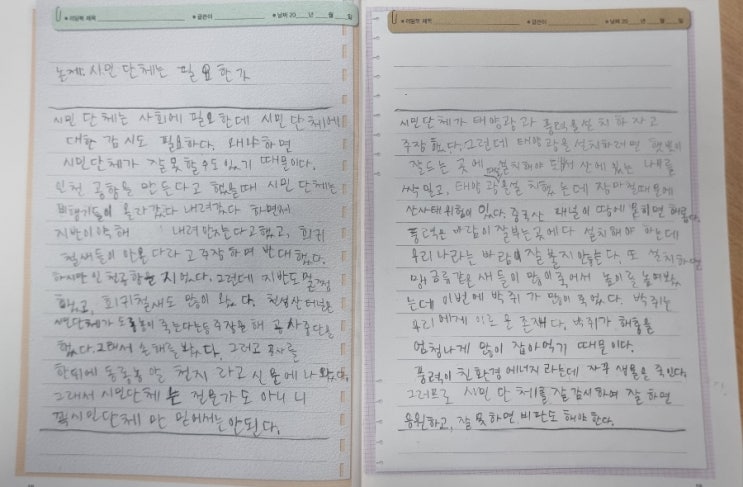 ● 리딩책 제목 ● 글쓴이 ● 날짜 20 년 월 일
논제: 시민단체는 필요한가
시민 단체는 사회에 필요한데 시민 단체에
대한 감시도 필요하다. 왜냐하면
시민단체가 잘못할수도 있기 때문이다.
인천 공항을 만든다고 했을때 시민 단체는
비행기들이 올라갔다 내려갔다 하면서
지반이약해 내려앉는다고했고, 희귀
철새들이 안온다라고 주장하며 반대했다.
하지만 인천공항을 지었다. 그런데 지반도 멀쩡
했고, 희귀철새도 많이 왔다. 천성산 터널은
시민단체가 도롱뇽이 죽는다는 주장을 해 공사중단을
했다. 그래서 손해를 봤다. 그리고 공사를
한뒤에 도롱뇽 알 천지 라고 신문에 나왔다.
그래서 시민단체는 전문가도 아니니
꼭 시민단체 만 믿어서는 안된다.
● 리딩책 제목 ● 글쓴이 ● 날짜 20 년 월 일
시민단체가 태양광과 풍력을 설치하자고
주장했다. 그런데 태양광을 설치하려면 햇빛이
잘드는 곳에 설치해야 되서 산에 있는 나무를
싹 밀고, 태양광을 설치했는데 장마철때문에
산사태위험이 있다. 중국산 패널이 땅에 묻히면 해롭다.
풍력은 바람이 잘부는곳에다 설치해야 하는데
우리나라는 바람이 잘 불지 않는다. 또 설치하면
독수리같은 새들이 많이 죽어서 높이를 높여봤
는데 이번에 박쥐가 많이 죽었다. 박쥐는
우리에게 이로운 존재다. 박쥐가 해충을
엄청나게 많이 잡아먹기 때문이다.
풍력이 친환경에너지라는데 자꾸 생물을 죽인다.
그러므로 시민 단체를 잘감시하여 잘 하면
응원하고, 잘 못하면 비판도 해야 한다.